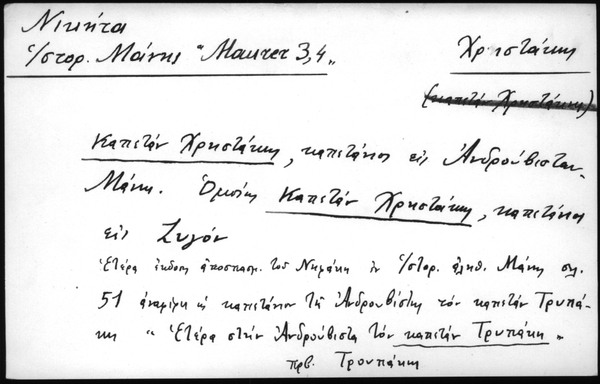 Νικήτα
Ἱστορ. Μάνης "Maurer 3,4"
Χρηστάκης
(καπετάν Χρηστάκης)
Καπετάν Χρηστάκης, καπετάνιος εἰς Ἀνδρούβισταν
Μάνης. Ὁμοίως Καπετάν Χρηστάκης, καπετάνιος
εἰς Ζυγόν
Ἑτέρα ἔκδοση ἀποσπασμ. τοῦ Νηφάκη ἐν Ἱστορ. ἀληθ. Μάνης σελ.
51 ἀναφέρει ὡς καπετάνιον τῆς Ἀνδρουβίστης τόν καπετάν Τρυπά-
κη " Ἑτέρα στήν Ἀνδρούβιστα τόν καπετάν Τρυπάκη "
πρβ. Τρουπάκης